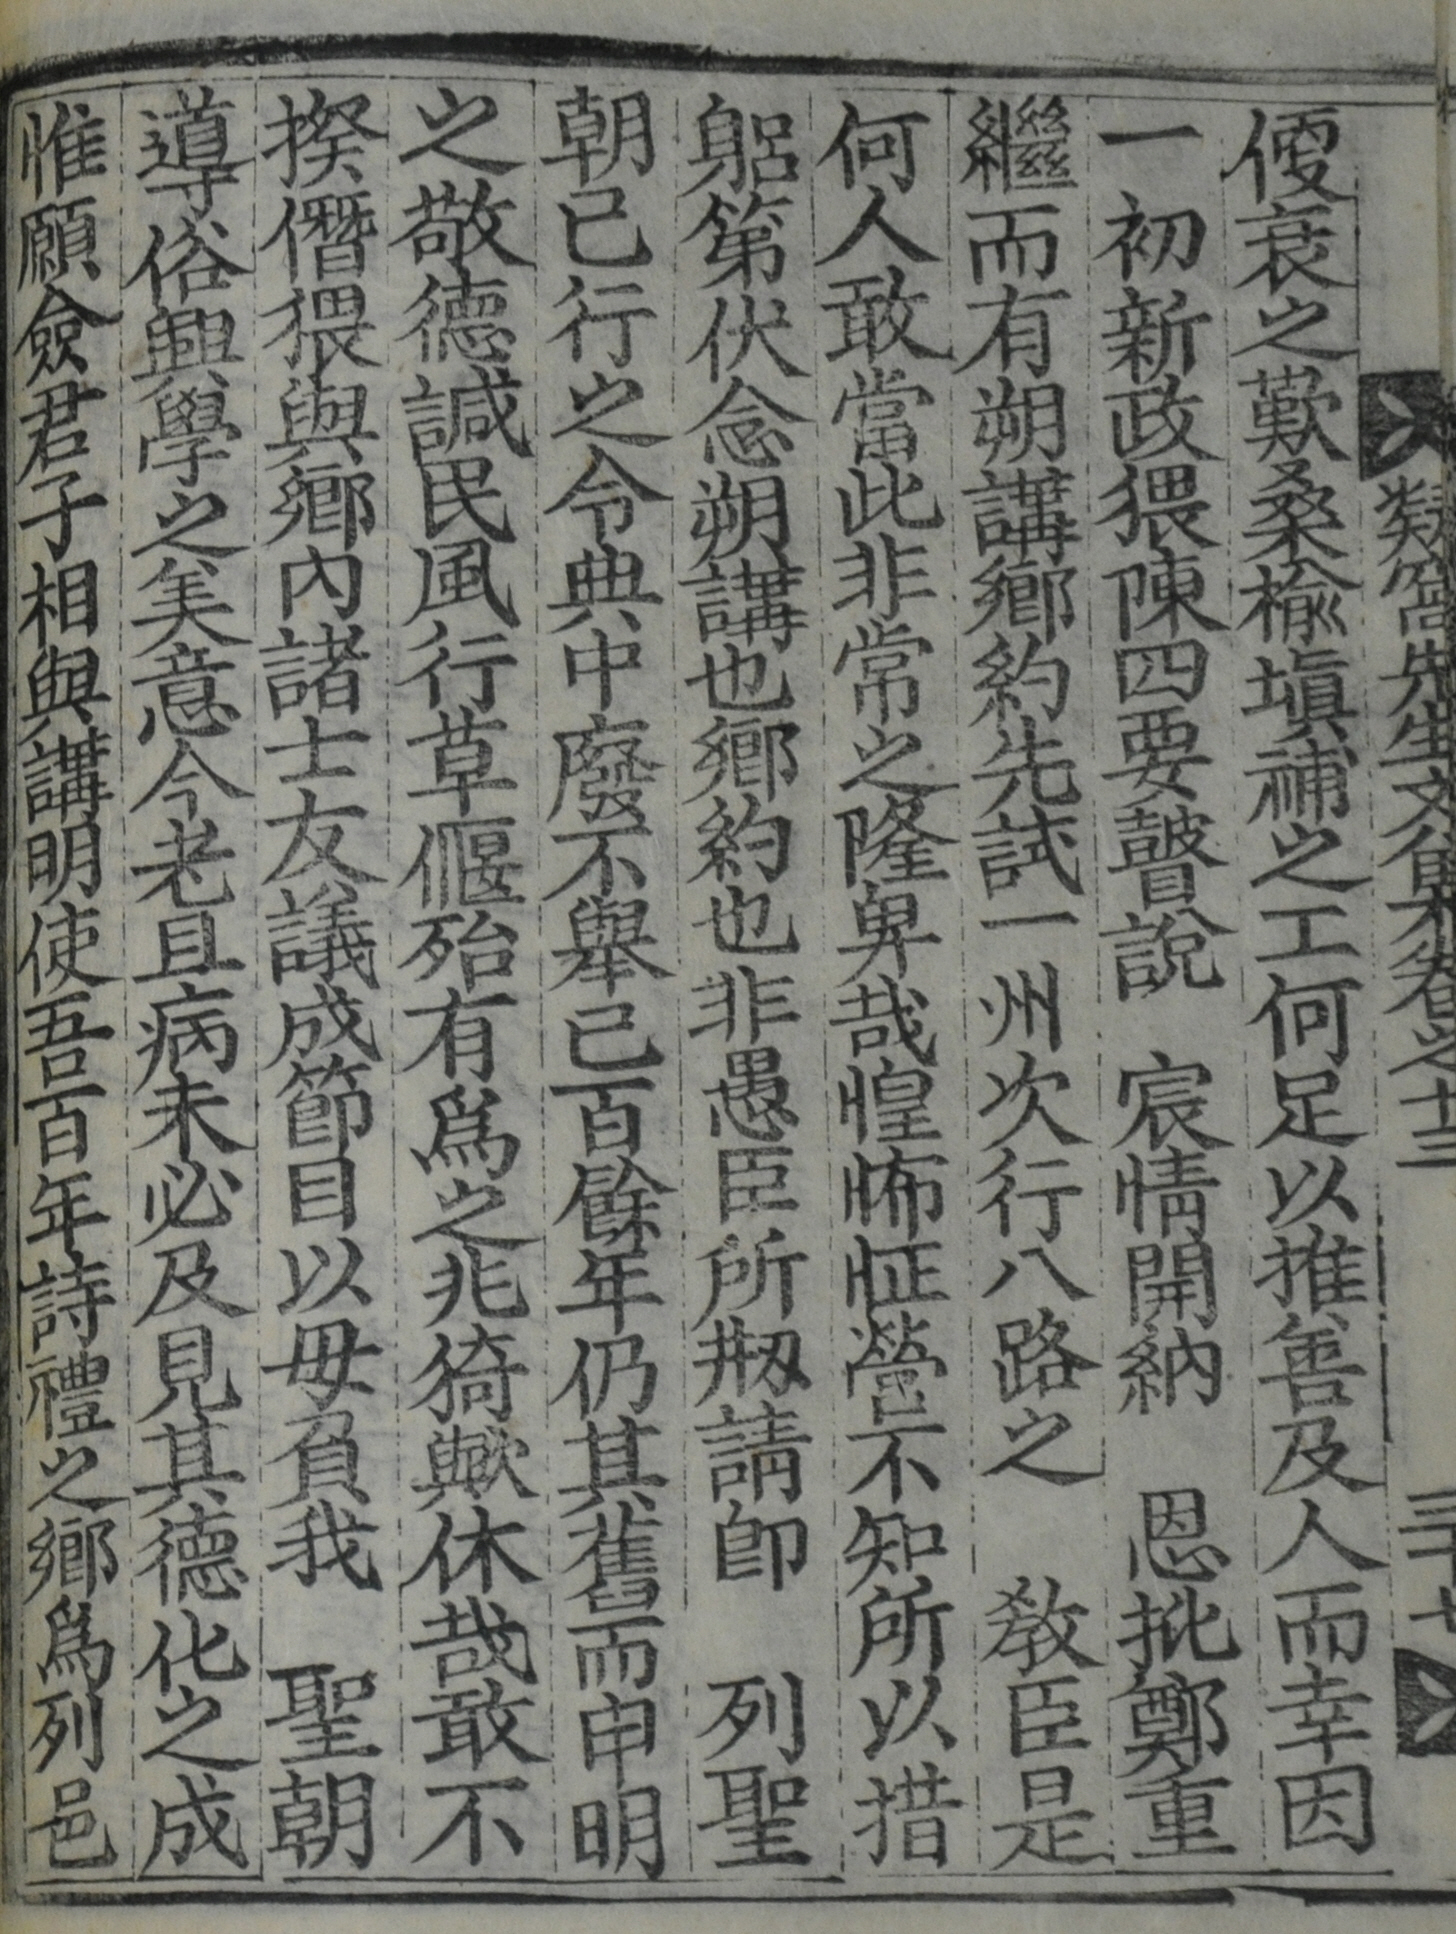 癡窩先生文集卷之十三 三十七
㥠衰之歎桑楡塡補之工何足以推善及人而幸因
一初新政猥陳四要瞽說 宸情開納 恩批鄭重
繼而有朔講鄕約先試一州次行八路之 敎臣是
何人敢當此非常之隆卑哉惶怖怔營不知所以措
躬第伏念朔講也鄕約也非愚臣所刱請卽 列聖
朝已行之令典中廢不擧已百餘年仍其舊而申明
之敬德諴民風行草偃殆有爲之兆猗歟休哉敢不
揆僭猥與鄕內諸士友議成節目以毋負我 聖朝
導俗興學之美意今老且病未必及見其德化之成
惟願僉君子相與講明使吾百年詩禮之鄕爲列邑